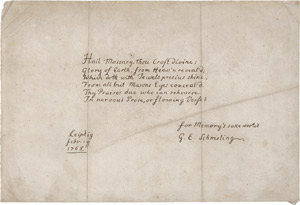 Hail Masonry, thou Craft Divine;
Glory of Earth, from Heav'n reveal'd;
Which doth with Jewels precious shine,
From all but Masons Eyes conceal'd
Thy Praises due who can rehearse
In nervous Prose, or flowing Verse?
for Memory's sake
G. E. Schmeling
Leipzig
Febr. 19